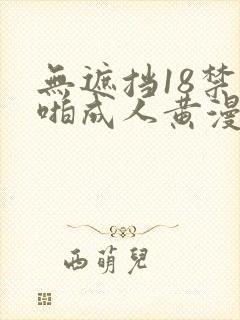 無遮挡18禁啪
啪成人黄漫
西萌兒